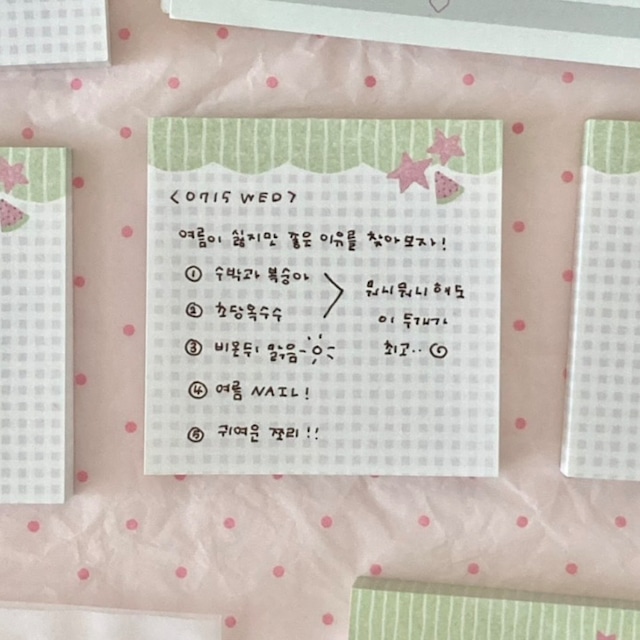 <0715 WED>
여름이 싫지만 좋은 이유를 찾아보자!
① 수박과 복숭아
② 초당옥수수
뭐니뭐니해도
이 두개가
최고..
③ 비온뒤 맑음
④ 여름 NAIL!
⑤ 귀여운 쪼리!!